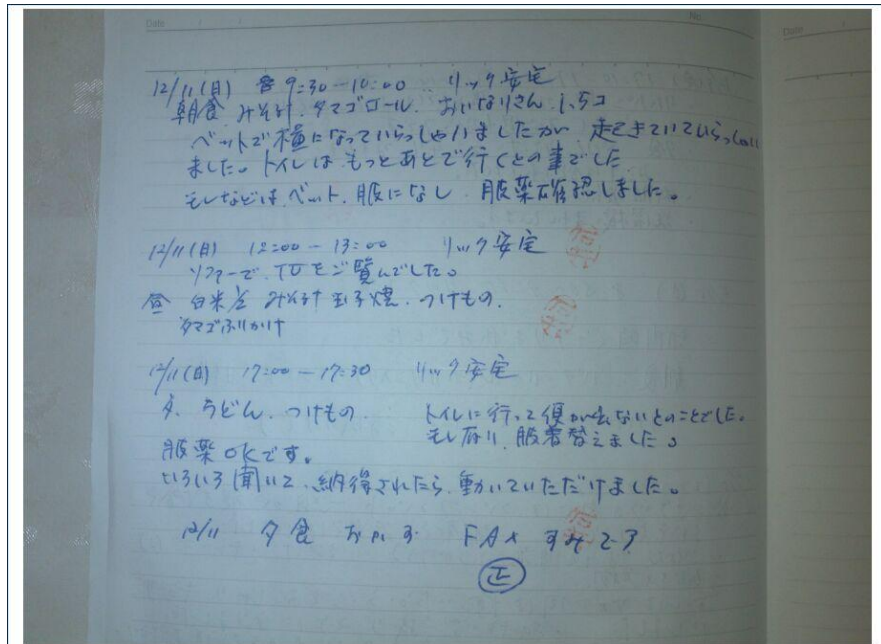 Date
No.
Date
12/11(日) 9:30-10:00 リック安定
朝食 みそ汁.タマゴロール.おいなりさん
ベットで横になっていらっしゃいましたが 起きていていらっしゃい
ました。トイレはもっとあとで行くとの事でした
モレなどは、ベット、服になし 服薬確認しました。
12/11(日) 12:00-13:00 リック安定
ソファーで、TVをご覧んでした。
昼 白米 みそ汁 玉子焼、つけもの、
タマゴふりかけ
12/11(日) 17:00-17:30 リック安定
夕、うどん、つけもの トイレに行って便が出ないとのことでした。
モレ有り、服着替えました。
服薬OKです。
いろいろ聞いて、納得されたら、動いていただけました。
12/11 夕食 FAX すみです
正